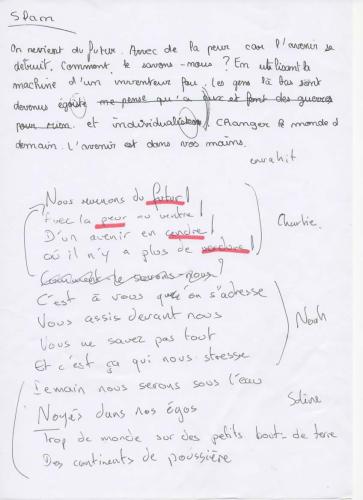 Slam
On revient du futur. Avec de la peur car l'avenir se
détruit. Comment le savons-nous ? En utilisant la
machine d'un inventeur fou. Les gens là bas sont
devenus égoiste ne pense qu'à eux et font des guerres
pour rien. et individualiste Changer le monde d
demain. L'avenir est dans vos mains.
Nous revenons du futur !
Avec la peur au ventre !
D'un avenir en cendre !
où il n'y a plus de verdure !
Charlie
Comment le savons-nous ?
C'est à vous qu'on s'adresse
Vous assis devant nous
Vous ne savez pas tout
Et c'est ça qui nous stresse
Noah
Demain nous serons sous l'eau
Noyés dans nos égos
Soline
Trop de monde sur des petits bouts de terre
Des continents de poussière